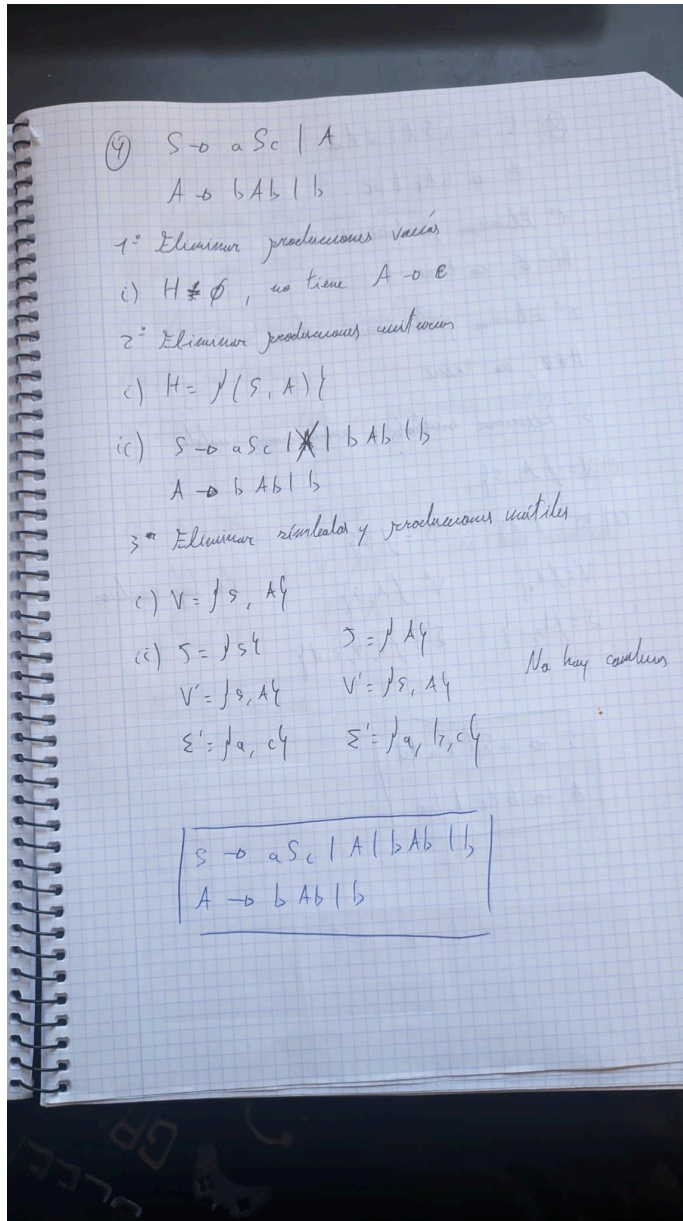 ④ S → aSc | A
A → bAb | b
1º Eliminar producciones vacías
i) H ≠ ∅, no tiene A → ε
2º Eliminar producciones unitarias
i) H = {(S, A)}
ii) S → aSc | A | bAb | b
A → bAb | b
3º Eliminar símbolos y producciones inútiles
i) V = {S, A}
ii) J = {S} J = {A}
No hay cambios
V' = {S, A} V' = {S, A}
Σ' = {a, c} Σ' = {a, b, c}
S → aSc | A | bAb | b
A → bAb | b